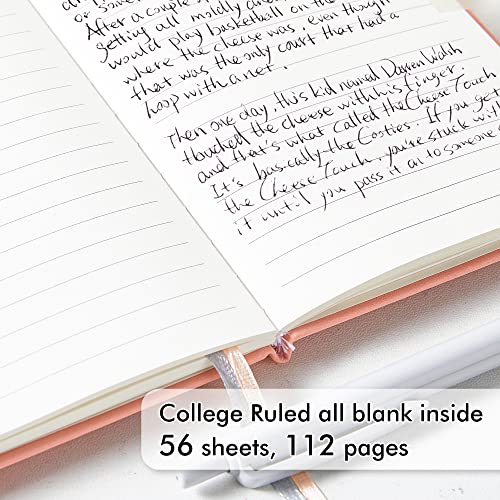 or some
After a couple
getting all moldly and
would play basketball on the
where the cheese was, even though
that was the only court that had a
hoop with a net.
Then one day, this kid named Darren Walsh
thuched the cheese with his finger.
and that's what called the Cheese Touch
It's basically the Cooties. If you get
the Cheese Touch, you're stuck with
it until you pass it on to someone
College Ruled all blank inside
56 sheets, 112 pages